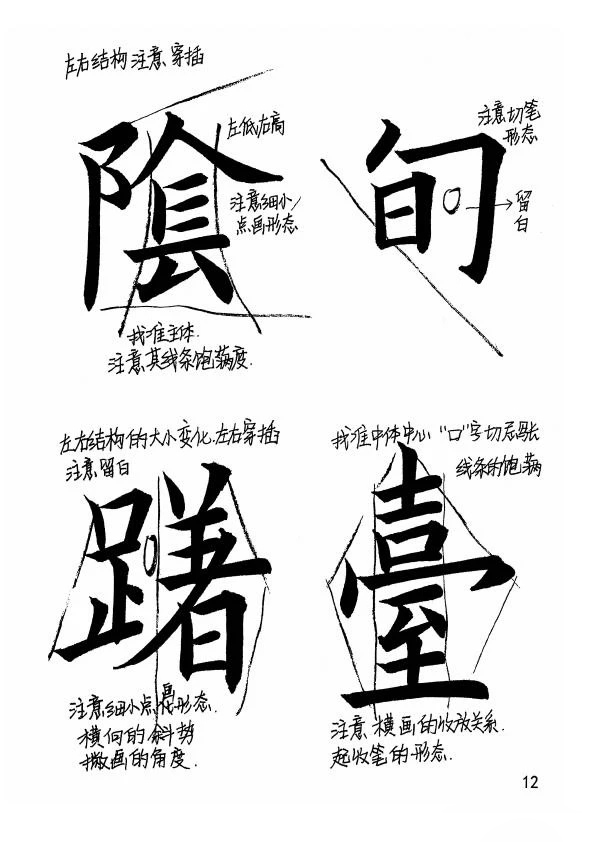 左右结构注意穿插
左低右高
陰
注意细小
点画形态
找准主体.
注意其线条饱满度.
注意切笔
形态
旬
留
白
左右结构的大小变化.左右穿插
注意留白
躇
注意细小点 形态.
横向的斜势
撇画的角度.
找准中体中心 "口"字切忌 长
线条的饱满
臺
注意 横画的收放关系.
起收笔的形态.
12